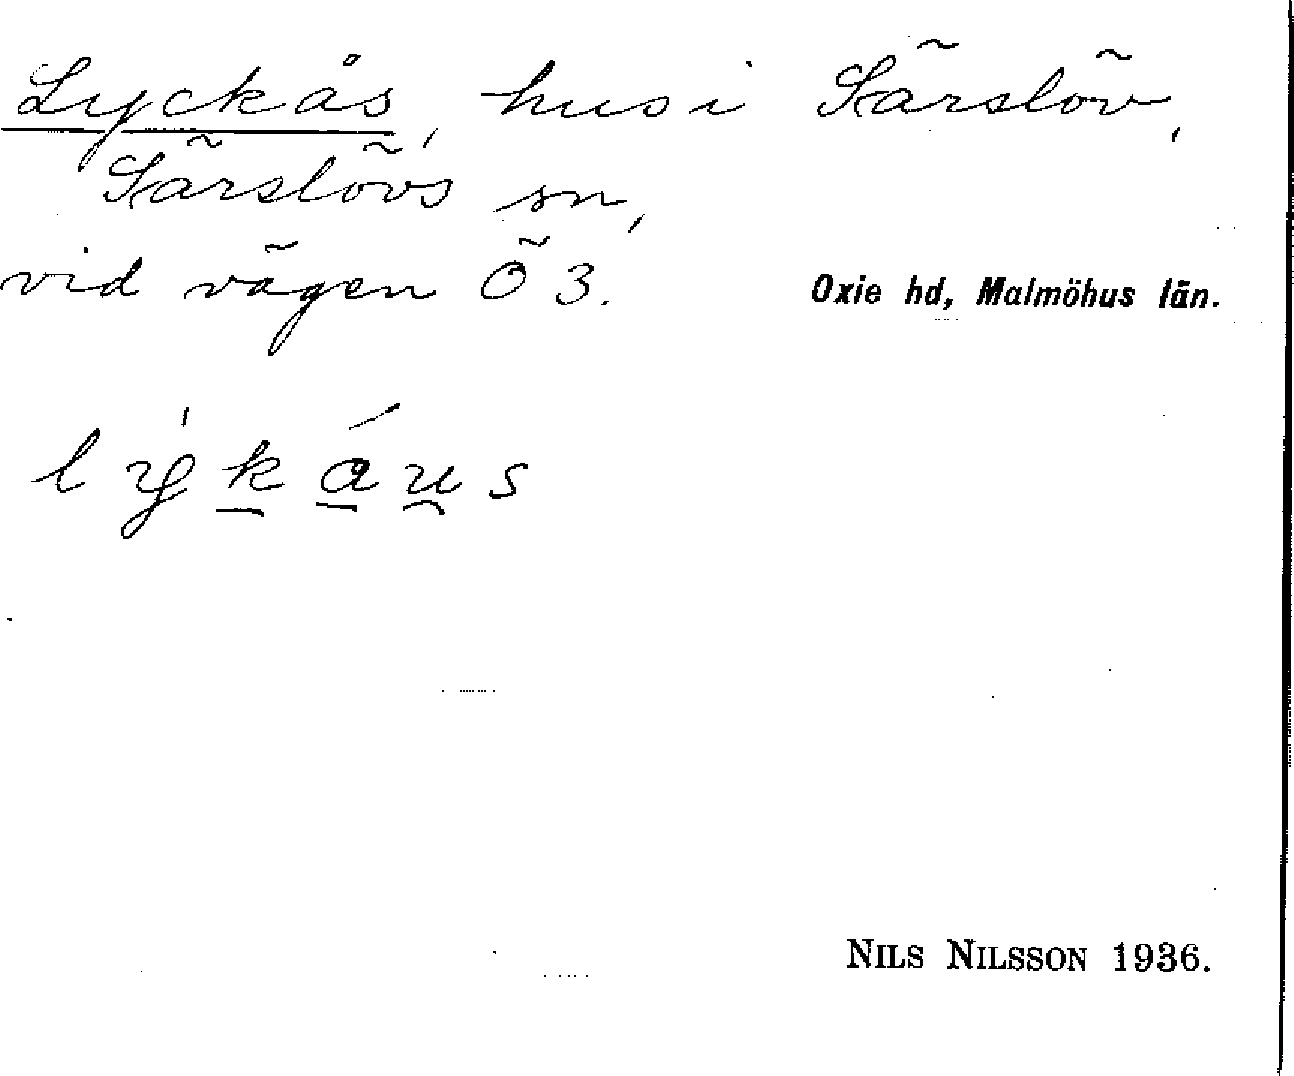 Lyckås, hus i Särslöv,
Särslövs sn,
vid vägen Ö 3.
Oxie hd, Malmöhus län.
lýkáu̯s
NILS NILSSON 1936.